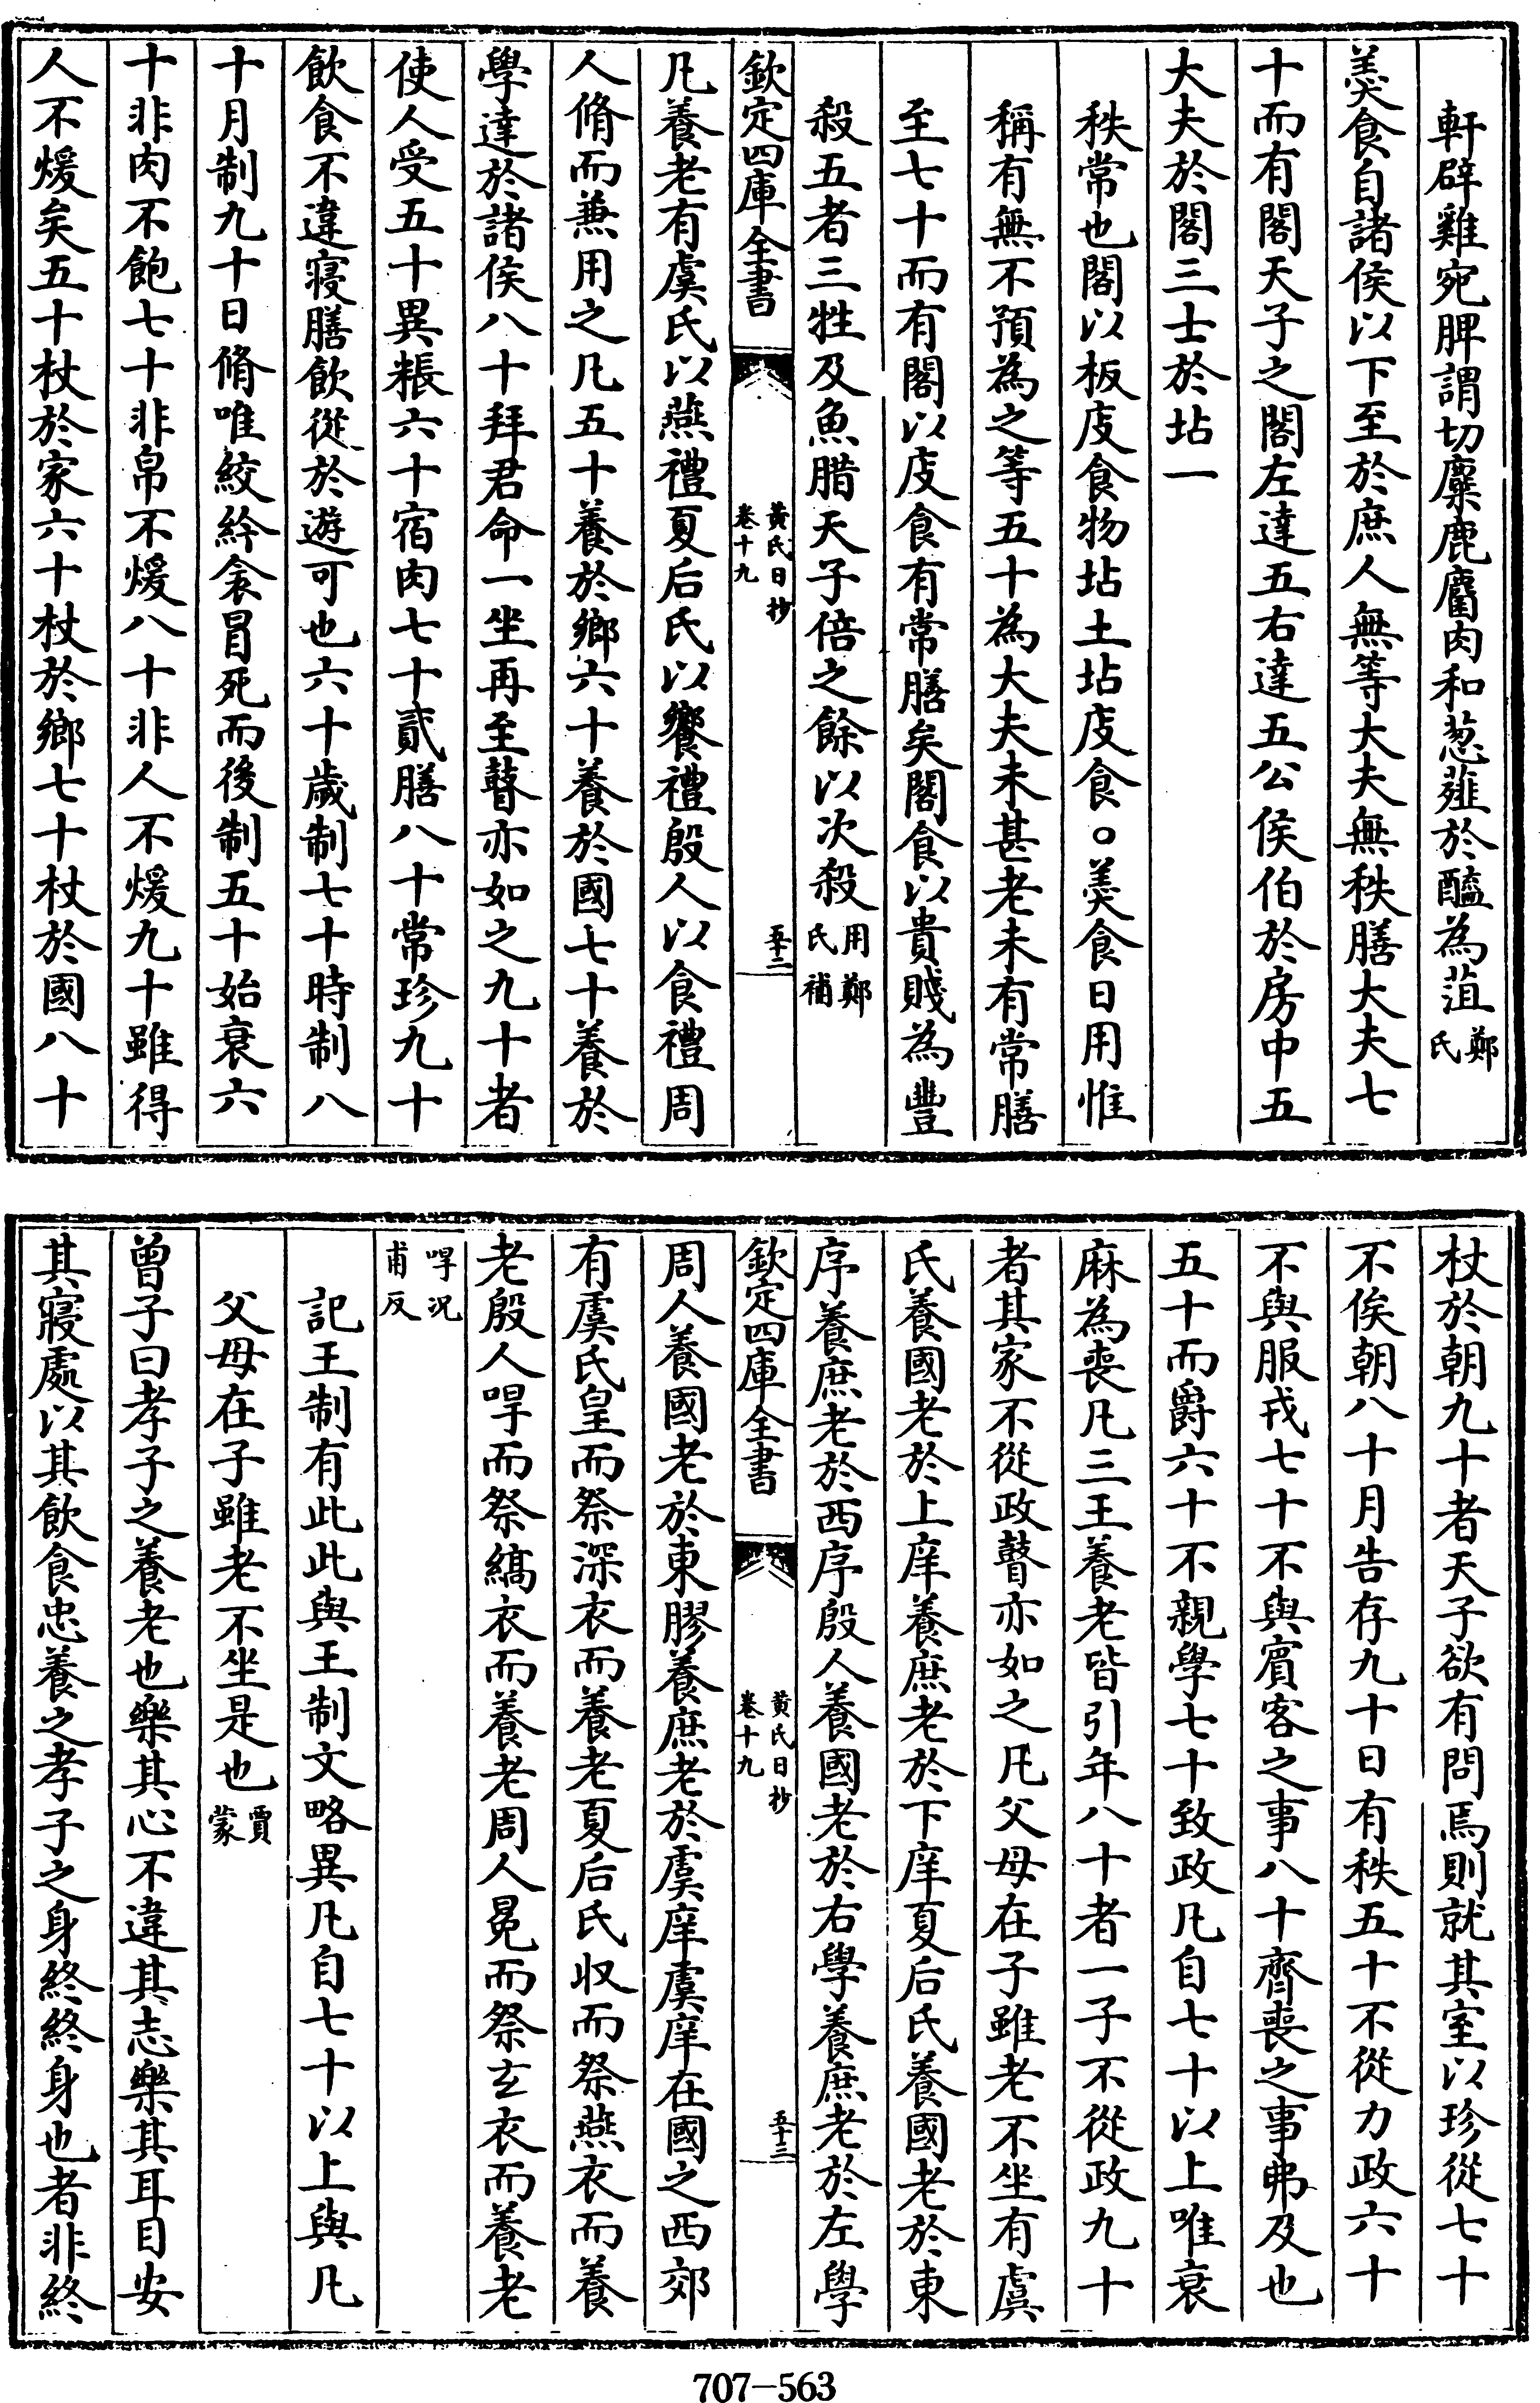 軒辟雞宛脾謂切麋鹿麕肉和葱薤於醯為菹鄭氏
羮食自諸侯以下至於庶人無等大夫無秩膳大夫七
十而有閣天子之閣左達五右達五公侯伯於房中五
大夫於閣三士於坫一
秩常也閣以板庋食物坫土坫庋食○羮食日用惟
稱有無不預為之等五十為大夫未甚老未有常膳
至七十而有閣以庋食有常膳矣閣食以貴賤為豐
殺五者三牲及魚腊天子倍之餘以次殺用鄭氏補
欽定四庫全書
黃氏日抄
卷十九
五十二
凡養老有虞氏以燕禮夏后氏以饗禮殷人以食禮周
人脩而兼用之凡五十養於鄉六十養於國七十養於
學達於諸侯八十拜君命一坐再至瞽亦如之九十者
使人受五十異粻六十宿肉七十貳膳八十常珍九十
飲食不違寢膳飲從於遊可也六十歲制七十時制八
十月制九十日脩唯絞紟衾冒死而後制五十始衰六
十非肉不飽七十非帛不煖八十非人不煖九十雖得
人不煖矣五十杖於家六十杖於鄉七十杖於國八十
杖於朝九十者天子欲有問焉則就其室以珍從七十
不俟朝八十月告存九十日有秩五十不從力政六十
不與服戎七十不與賓客之事八十齊喪之事弗及也
五十而爵六十不親學七十致政凡自七十以上唯衰
麻為喪凡三王養老皆引年八十者一子不從政九十
者其家不從政瞽亦如之凡父母在子雖老不坐有虞
氏養國老於上庠養庶老於下庠夏后氏養國老於東
序養庶老於西序殷人養國老於右學養庶老於左學
欽定四庫全書
黃氏日抄
卷十九
五十三
周人養國老於東膠養庶老於虞庠虞庠在國之西郊
有虞氏皇而祭深衣而養老夏后氏収而祭燕衣而養
老殷人哻而祭縞衣而養老周人冕而祭玄衣而養老
哻况甫反
記王制有此此與王制文略異凡自七十以上與凡
父母在子雖老不坐是也賈蒙
曽子曰孝子之養老也樂其心不違其志樂其耳目安
其寢處以其飲食忠養之孝子之身終終身也者非終
707-563